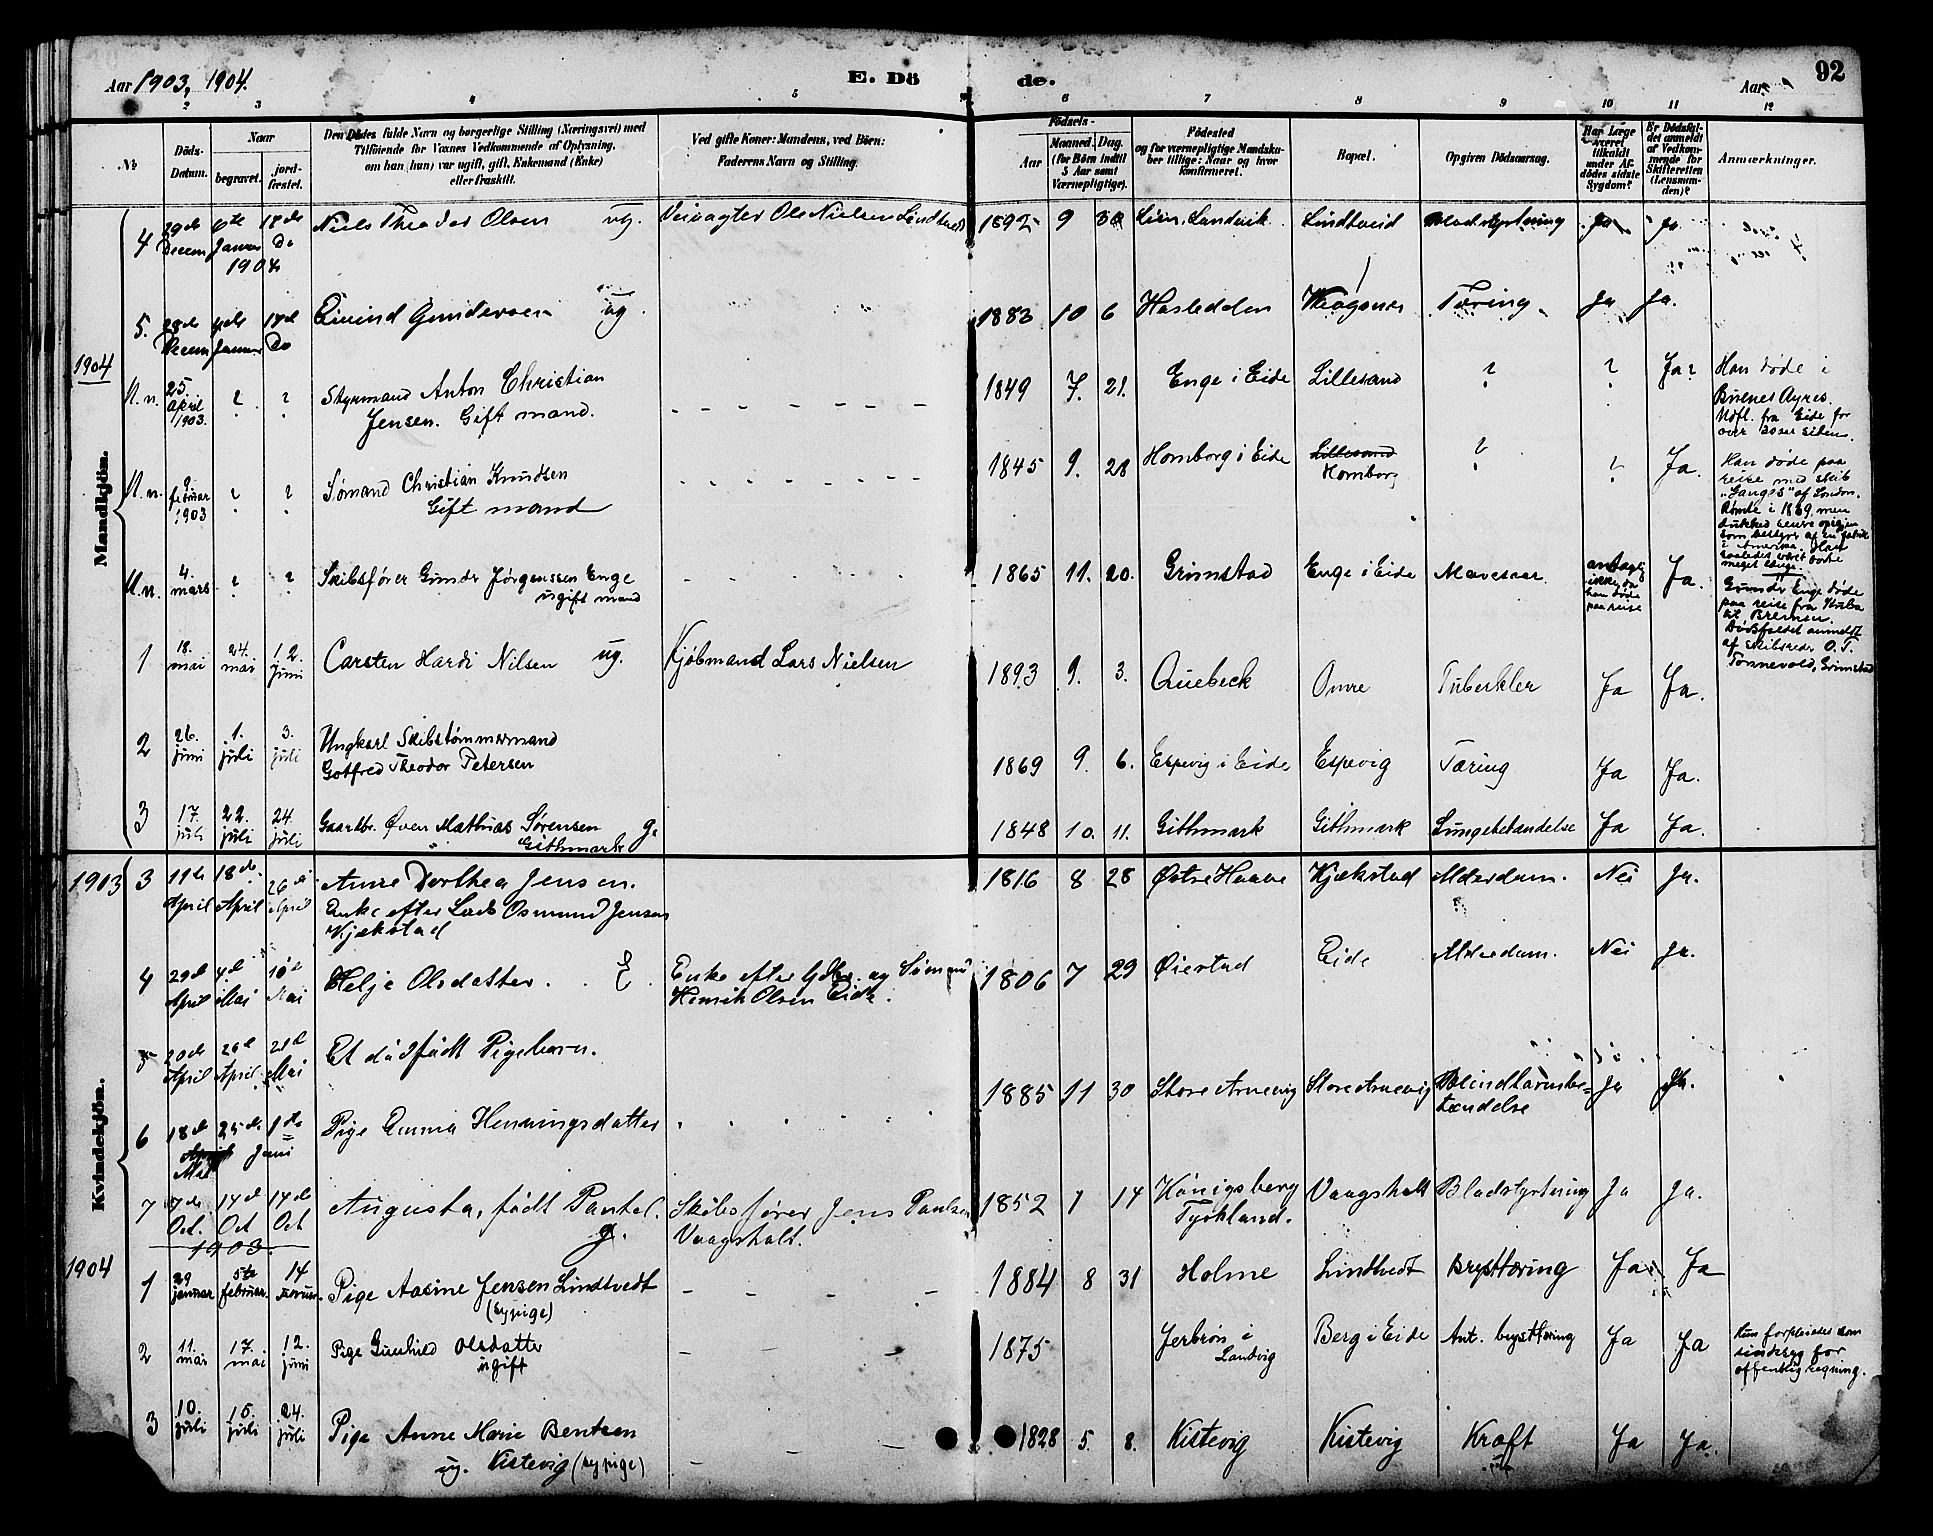 Aar 1903, 1904.
E. Dö de.
Aar
92
2 3 4 5 6 7 8 9 10 11 12
No
Döds-Datum.
Naar
begravet.
jord-fæstet.
Den Dödes fulde Navn og borgerlige Stilling (Næringsvei) med
Tilföiende for Voxnes Vedkommende af Oplysning,
om han (hun) var ugift, gift, Enkemand (Enke)
eller fraskilt.
Ved gifte Koner: Mandens, ved Börn:
Faderens Navn og Stilling.
Födsels-
Aar
Maaned. Dag.
(for Börn indtil
5 Aar samt
Værnepligtige).
Födested
og for værnepligtige Mandska-
ber tillige: Naar og hvor
konfirmeret.
Bopæl.
Opgiven Dödsaarsag.
Har Læge
været
tilkaldt
under Af-
dödes sidste
Sygdom?
Er Dödsfal-
det anmeldt
af Vedkom-
mende for
Skifteretten
(Lensman-
den)?
Anmærkninger.
Mandkjön.
4 29de Decem 6te Januar 1904 17de Do Niels Theodor Olsen ug. Veivogter Ole Nielsen Lindtveit 1892 9 30 Lien, Landvik Lindtveid Blodstyrtning Ja Ja
5. 28de Decem Januar 17de Do Eivind Gundersen ug. 1883 10 6 Hasleddlen Tæring Ja Ja.
1904
U.n. 25. April 1903. ? ? Styrmand Anton Christian
Jensen. Gift mand. 1849 7. 21. Enge i Eide Lillesand ? ? Ja? Han døde i
Buenes Ayres.
Udfl. fra Eide for
over 30 aar siden.
U.n. 9. februar 1903 ? ? Sømand Christian Knudsen
Gift mand 1845 9. 28 Homborg i Eide Lillesand
Homborg ? ? Ja. Han døde paa
reise med skib
"Ganges" af London.
Rømte i 1869, men
som bestyrer af en fabrik
i Amerika. Han
meget længe.
U.n. 4. mars ? ? Skibsfører Gunder Jørgenssen Enge
ugift mand 1865 11. 20. Grimstad Enge i Eide Mavesaar antagl.
ikke, da
han døde
paa reise Ja. Gunder Enge døde
paa reise fra Kuba
til Bremen.
Dødsfaldet anmeldt
af skibsreder O. T.
Tønnevold, Grimstad
1 18. mai 24. mai 12. juni Carsten Hardi Nilsen ug. Kjøbmand Lars Nielsen 1893 9. 3. Quebeck Omre Tuberkler Ja Ja.
2 26. juni 1. juli 3. juli Ungkarl Skibstømmermand
Gotfred Theodor Petersen 1869 9. 6. Espevig i Eide Espevig Tæring Ja Ja.
3 17. juli 22. juli 24. juli Gaardbr. Øven Mathias Sørensen g.
Githmark 1848 10. 11. Githmark Githmark Lungebetændelse Ja Ja.
Kvindekjön.
1903 3 11te April 18de April 26de April Anne Dorthea Jensen.
Enke efter Lods Osmund Jensen
Kjækstad 1816 8 28 Østre Haave Kjækstad Alderdom. Nei Ja.
4 29de April 4de Mai 10de Mai Helje Olsdatter. E. Enke efter Gdbr. og Sømand
Henrik Olsen Eide. 1806 7 29 Øiestad Eide Alderdom. Nei Ja.
5 20de April 26de April 21de Mai Et dödfødt Pigebarn.
6 18de Mai 25de 1te Juni Pige Emma Henningsdatter 1885 11 30 Store Arnevig Store Arnevig Blindtarmsbe=
tændelse Ja Ja.
7 7de Oct. 14de Oct 14de Oct Augusta, født Pantel.
g. Skibsfører Jens Paulsen
Vaagsholt. 1852 1 14 Königsberg
Tyskland. Vaagsholt Blodstyrtning Ja Ja.
1903.
1904 1 29 januar 5te februar. 14 Februar. Pige Aasine Jensen Lindtvedt
(sypige) 1884 8 31 Holme Lindtvedt Brysttæring Ja Ja
2 11. mai 17. mai 12. juni Pige Gunhild Olsdatter
ugift 1875 Jerbrön i
Landvig Berg i Eide Ant. brysttæring Ja Ja Hun forpleiedes som
sindsyg for
offentlig regning.
3 10. juli 15. juli 24. juli Pige Anne Marie Bentsen
ug. Kistevig (sypige) 1828 5. 8. Kistevig Kistevig Kræft Ja Ja.